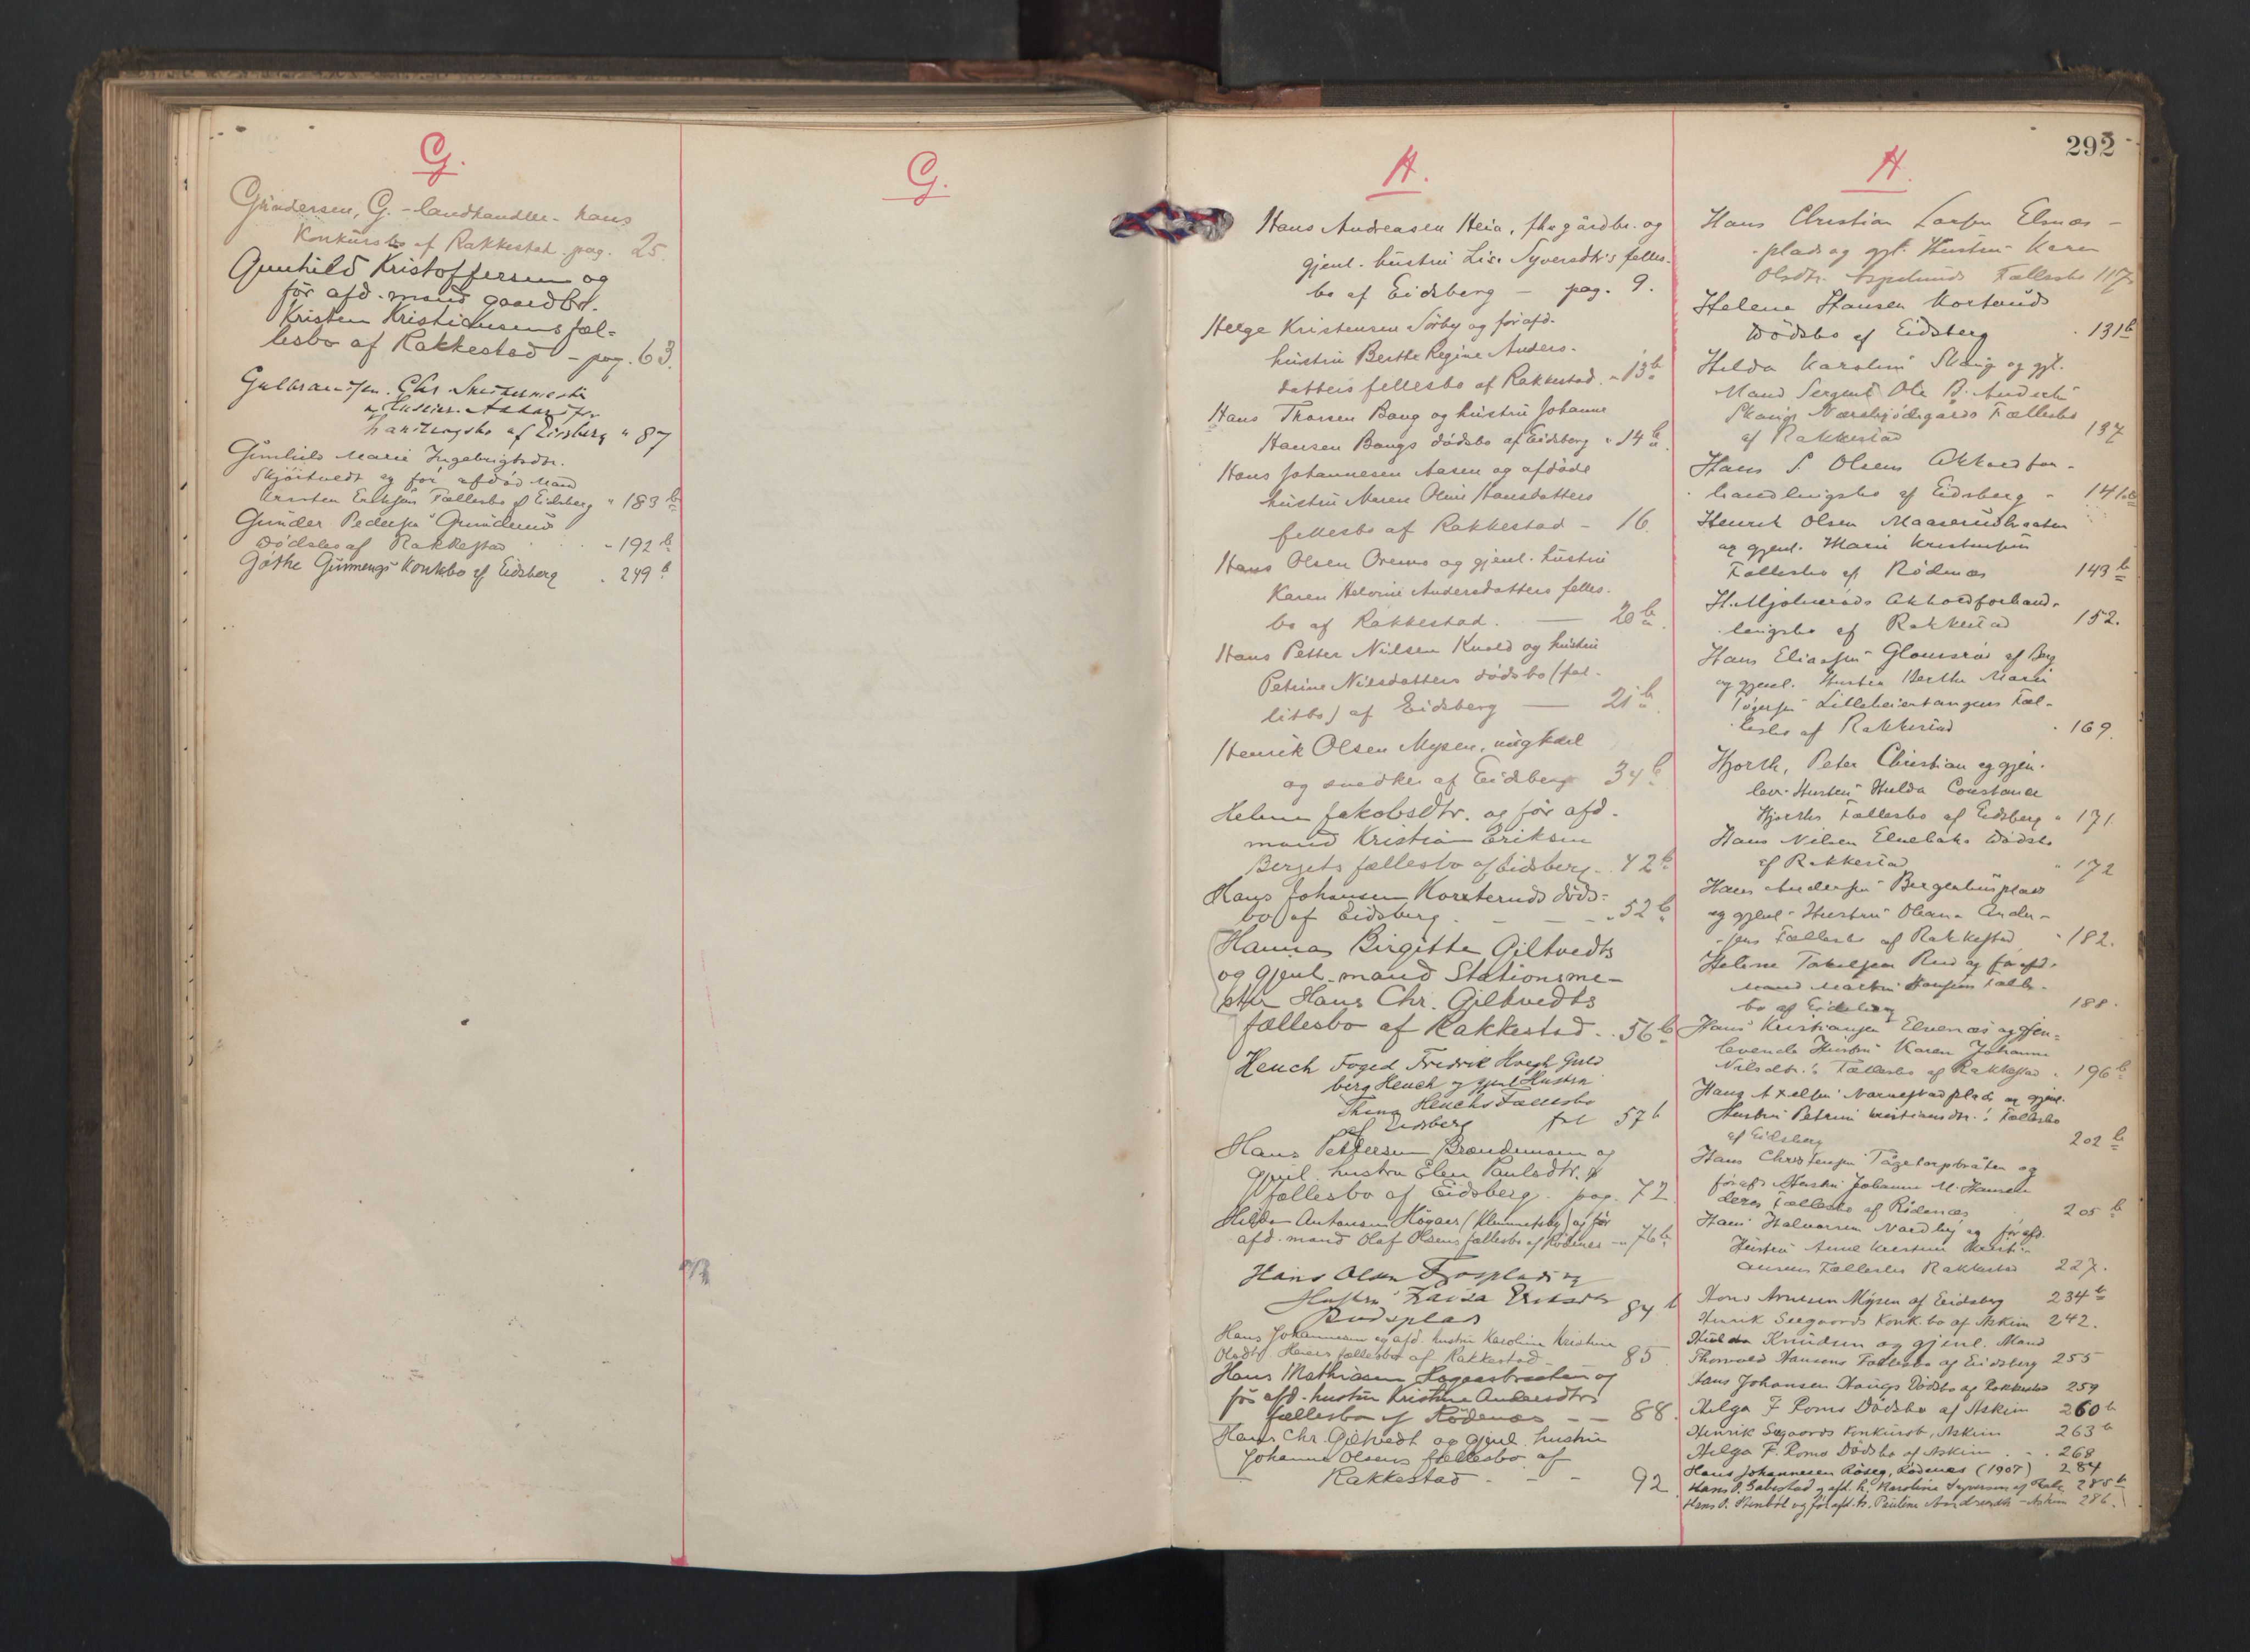 G.
Gundersen, G. - landhandler - hans
Konkursbo af Rakkestad pag. 25.
Gunhild Kristoffersen og
før afd. mand gaardbr.
Kristen Kristiansens fæl-
lesbo af Rakkestad - pag. 63.
Gulbrandsen. Chr
handlingsbo af Eidsberg " 87
Gunhild Marie Ingebrigtsdtr.
Skjørtvedt og før afdød Mand
Kristen Eriksøns Fællesbo af Eidsberg " 183 b
Gunder Pedersen Grundend
Dødsbo af Rakkestad - 192 b
Gøthe Gunnengs Konkbo af Eidsberg . 249 b
G.
H.
Hans Andreasen Heia, fhv gårdbr. og
gjenl. hustru Lise Syversdtr's felles-
bo af Eidsberg - pag. 9.
Helge Kristensen Sørby og før afd.
hustru Berthe Regine Anders-
datters fellesbo af Rakkestad. " 13 b
Hans Thorsen Bang og hustru Johanne
Hansen Bangs dødsbo af Eidsberg " 14 b
Hans Johannesen Aasen og afdøde
hustru Maren Oline Hansdatters
fellesbo af Rakkestad - 16.
Hans Olsen Orems og gjenl. hustru
Karen Helvine Andersdatters felles-
bo af Rakkestad. — 20 b
Hans Petter Nilsen Knold og hustru
Petrine Nilsdatters dødsbo (fal-
litbo) af Eidsberg — 21 b
Henrik Olsen Mysen, ungkarl
og snedker af Eidsberg 34 b
Helene Jakobsdtr. og før afd.
mand Kristian Eriksen
Bergets fællesbo af Eidsberg - 42 b
Hans Johansen Korsteruds døds-
bo af Eidsberg - - - " 52 b
Hanna Birgitte Giltvedts
og gjenl. mand Stationsme-
ster Hans Chr. Giltvedts
fællesbo af Rakkestad - 56 b
Heuch Foged Fredrik Hvegh Guld
berg Heuch og gjenl Hustru
Thina Heuchs Fællesbo
af Eidsberg fol 57 b
Hans Pettersen Brændemoen og
gjenl. hustru Elen Paulsdtr.s
fællesbo af Eidsberg. pag. 72
Hilda Antonsen Högaas (Klemmetsby) og før
afd. mand Olaf Olsens fællesbo af Rödenes - " 76 b
Hans Olsen Fjosplads og
Hustru Kaisa Eriksdtr
Rudsplas 84 b
Hans Johannesen og afd. hustru Karoline Kristine
Olsdtr. Heiers fællesbo af Rakkestad - 85
Hans Mathiesen Hogaasbraaten og
før afd. hustru Kristine Andersdtrs
fællesbo af Rödenes - - 88.
Hans Chr. Giltvedt og gjenl. hustru
Johanne Olsens fællesbo af
Rakkestad - - - 92
292
H.
Hans Christian Larsen Elnæs-
-plads og gjl. Hustru Karen
Olsdtr. Fællesbo 117
Helene Hansen Korteruds
Dødsbo af Eidsberg . 131 b
Hilda Karoline Skaug og gjl.
Mand Sergent Ole B. Andersen
Skaugs Fællesbo
af Rakkestad 137
Hans S. Olsens Akkordfor-
handlingsbo af Eidsberg - 141
Henrik Olsen Maaserudbraaten
og gjenl. Marie Kristensens
Fællesbo af Rödenæs 143 b
H. Mjølneröds Akkordforhand-
lingsbo af Rakkestad 152.
Hans Eliassen Glomsröd af Berg
og gjenl. Hustru Berthe Marie
Fæl-
lesbo af Rakkestad . 169.
Hjorth, Peter Christian og gjen-
lev. Hustru Hulda Constance
Hjorths Fællesbo af Eidsberg " 171.
Hans Nilsen Elnebaks Dødsbo
af Rakkestad " 172
Hans Andersen Bergenhusplads
og gjenl. Hustru Oleana Ander-
-sens Fællesbo af Rakkestad " 182.
Helene Torkelsen Rud og før afd.
Mand Martin Hansens Fælles-
bo af Eidsberg 188.
Hans Kristiansen Elvenæs og gjen-
levende Hustru Karen Johanne
Nilsdtr.s Fællesbo af Rakkestad . 196 b
Hans Axelsen Narvestadplads og gjenl.
Hustru Petrine Kristiansdtr.s Fællesbo
af Eidsberg 202 b
Hans Christensen Tågetorpbråten og
før afd Hustru Johanne M. Hansen
deres Fællesbo af Rödenæs 205 b
Hans Halvorsen Nordby og før afd.
Hustru Anne Kirstine Kristi-
ansens Fællesbo Rakkestad 227.
Hans Arnesen Mysen af Eidsberg 234 b
Henrik Seegaards Konk.bo af Askim 242.
Hulda Knudsen og gjenl. Mand
Thorvald Hansens Fællesbo af Eidsberg 255
Hans Johansen Haugs Dødsbo af Rakkestad 259
Helga F Roms Dødsbo af Askim 260 b
Henrik Seegaards Konkursb, Askim 263 b
Helga F. Roms Dødsbo af Askim . - . 268
Hans Johannesen Röseg, Rödenes (1907) 284
Hans P. Gabestad og afd. h. Karoline Syversen af Rakk. 285 b
Hans O. Stenbøl og før afd. h. Pauline Andersdtr - Askim 286.